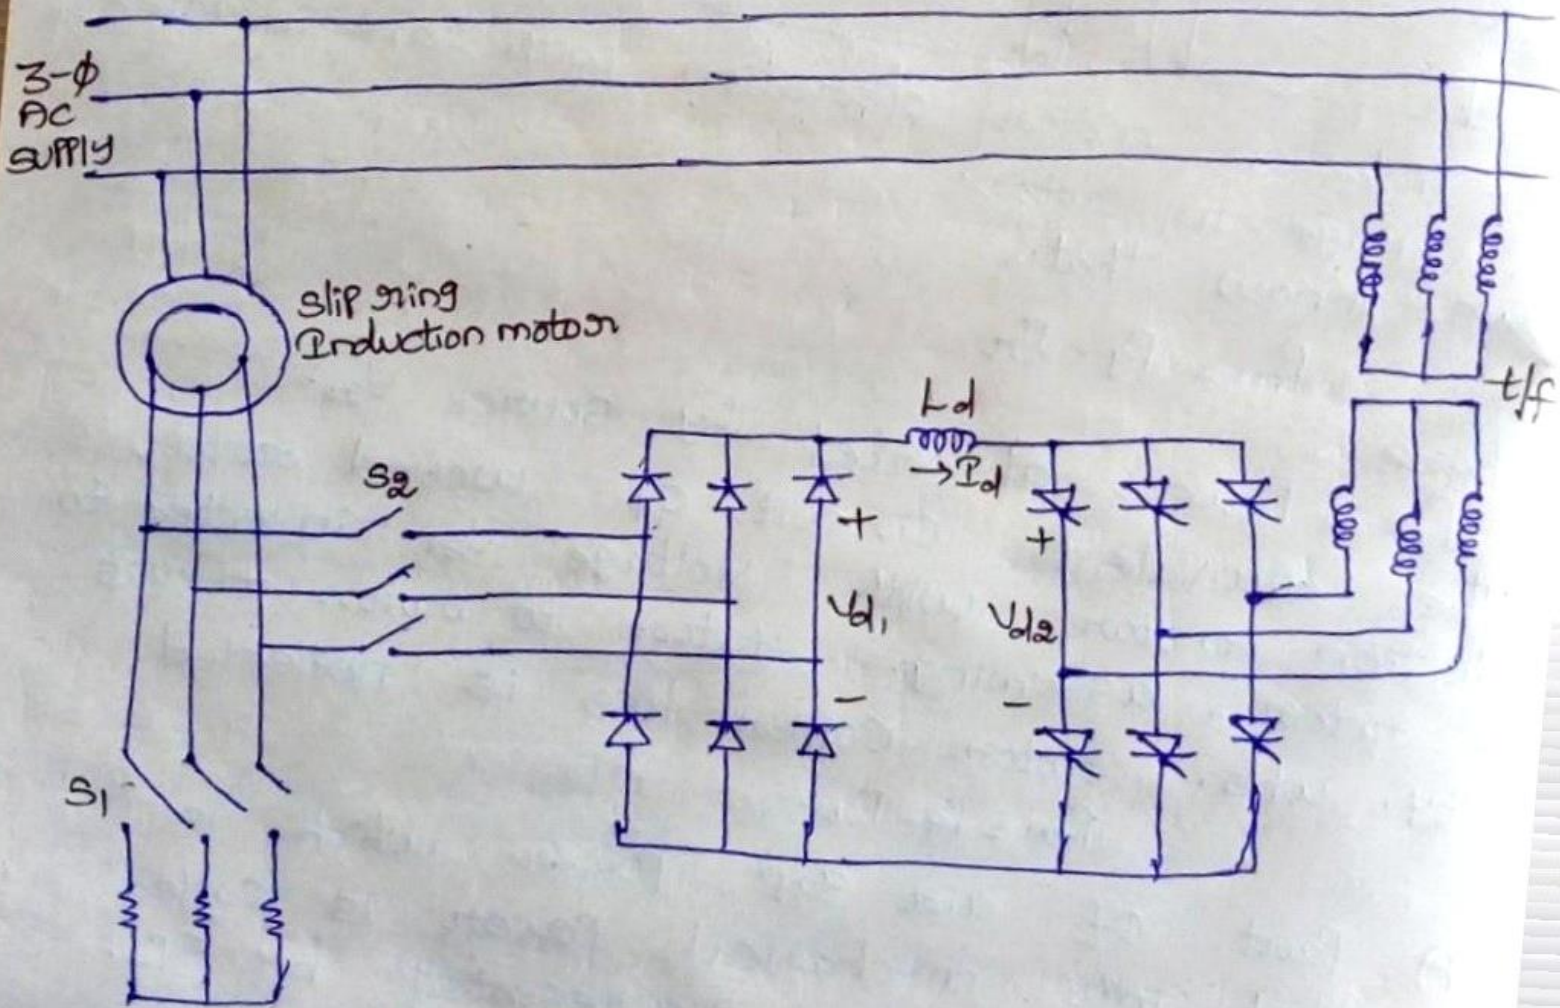 3-ϕ
AC
SUPPLY
Slip ring
Induction motor
S2
Ld
→Id
t/f
+
+
Vd1
Vd2
-
-
S1